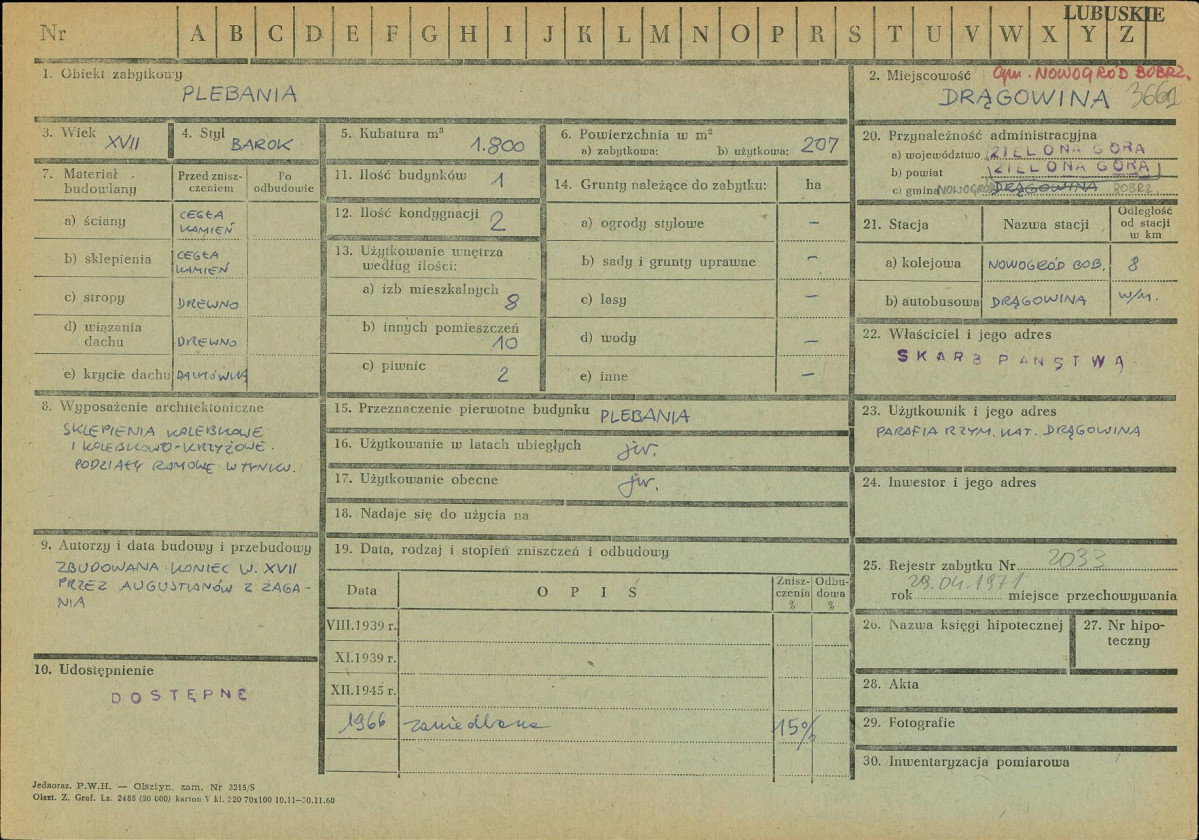 LUBUSKIE
Nr A B C D E F G H I J K L M N O P R S T U V W X Y Z
1. Obiekt zabytkowy
PLEBANIA
2. Miejscowość gm. NOWOGRÓD BOBRZ.
DRĄGOWINA
3. Wiek XVII
4. Styl BAROK
5. Kubatura m³ 1.800
6. Powierzchnia w m²
a) zabytkowa: b) użytkowa: 207
20. Przynależność administracyjna
a) województwo ZIELONA GÓRA
b) powiat ZIELONA GÓRA
c) gmina NOWOGRÓD DRĄGOWINA BOBRZ.
7. Materiał budowlany
Przed zniszczeniem
Po odbudowie
a) ściany CEGŁA KAMIEŃ
b) sklepienia CEGŁA KAMIEŃ
c) stropy DREWNO
d) wiązania dachu DREWNO
e) krycie dachu DACHÓWKA
11. Ilość budynków 1
12. Ilość kondygnacji 2
13. Użytkowanie wnętrza
według ilości:
a) izb mieszkalnych 8
b) innych pomieszczeń 10
c) piwnic 2
14. Grunty należące do zabytku: ha
a) ogrody stylowe –
b) sady i grunty uprawne –
c) lasy –
d) wody –
e) inne –
21. Stacja Nazwa stacji Odległość od stacji w km
a) kolejowa NOWOGRÓD BOB. 8
b) autobusowa DRĄGOWINA W/M.
22. Właściciel i jego adres
SKARB PAŃSTWA
8. Wyposażenie architektoniczne
SKLEPIENIA KOLEBKOWE
I KOLEBKOWO-KRZYŻOWE.
PODZIAŁY RAMOWE W TYNKU.
15. Przeznaczenie pierwotne budynku PLEBANIA
16. Użytkowanie w latach ubiegłych jw.
17. Użytkowanie obecne jw.
18. Nadaje się do użycia na
23. Użytkownik i jego adres
PARAFIA RZYM. KAT. DRĄGOWINA
24. Inwestor i jego adres
9. Autorzy i data budowy i przebudowy
ZBUDOWANA KONIEC W. XVII
PRZEZ AUGUSTIANÓW Z ŻAGA-
NIA
19. Data, rodzaj i stopień zniszczeń i odbudowy
Data OPIS Zniszczenia % Odbudowa %
VIII.1939 r.
XI.1939 r.
XII.1945 r.
1966 zaniedbana 15%
25. Rejestr zabytku Nr 2033
rok 29.04.1971 miejsce przechowywania
26. Nazwa księgi hipotecznej
27. Nr hipo-
teczny
10. Udostępnienie
DOSTĘPNE
28. Akta
29. Fotografie
30. Inwentaryzacja pomiarowa
Jednoraz. P.W.H. — Olsztyn, zam. Nr 3215/S
Olszt. Z. Graf. Lz. 2485 (30 000) karton V kl. 220 70x100 10.11—30.11.60